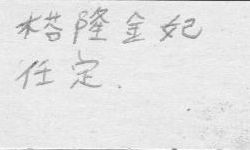 榙隆金妃
任定.